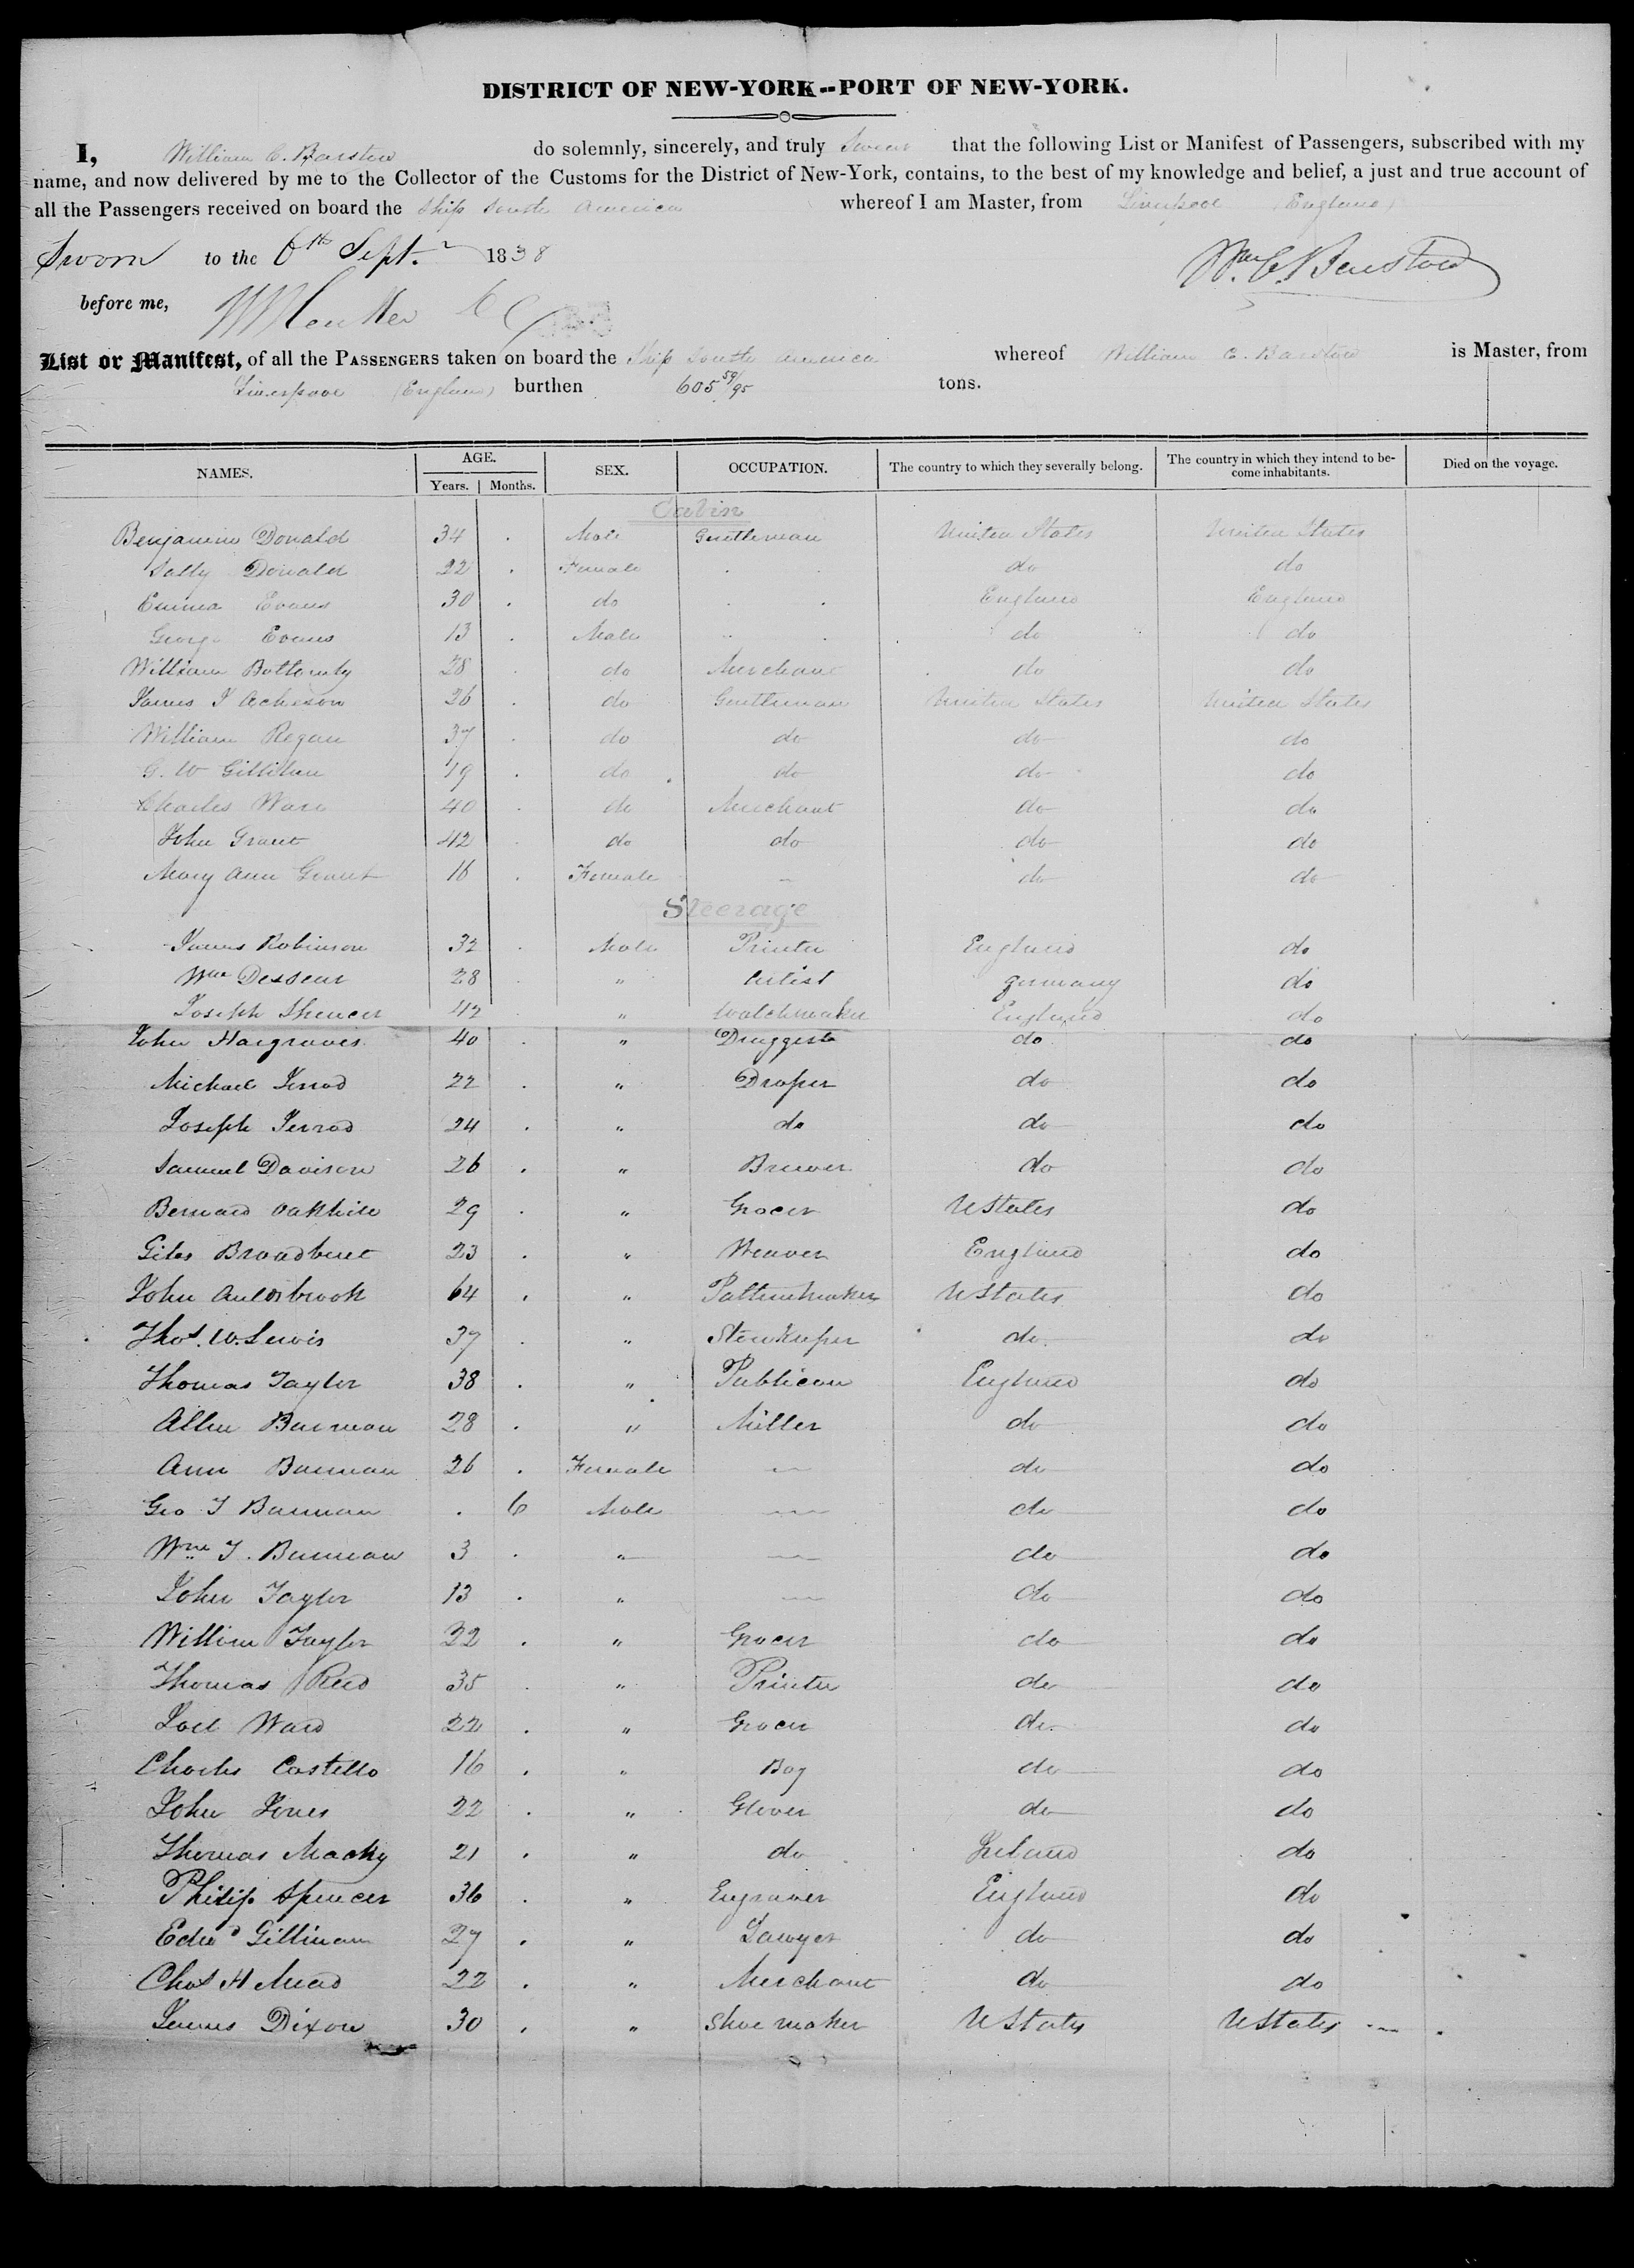 DISTRICT OF NEW-YORK--PORT OF NEW-YORK.
I, William C. Barstow do solemnly, sincerely, and truly Swear that the following List or Manifest of Passengers, subscribed with my
name, and now delivered by me to the Collector of the Customs for the District of New-York, contains, to the best of my knowledge and belief, a just and true account of
all the Passengers received on board the Ship South America whereof I am Master, from Liverpool (England)
Sworn to the 6th Sept. 1838 Wm. C. Barstow
before me,
List or Manifest, of all the PASSENGERS taken on board the Ship South America whereof William C. Barstow is Master, from
Liverpool (England) burthen 605 59/95 tons.
NAMES. AGE. Years. Months. SEX. OCCUPATION. The country to which they severally belong. The country in which they intend to become inhabitants. Died on the voyage.
Cabin
Benjamin Donald 34 . Male Gentleman United States United States
Sally Donald 22 . Female . . do do
Emma Evans 30 . do . . England England
George Evans 13 . Male " . do do
William Bottomly 28 . do Merchant do do
James J Acheson 26 . do Gentleman United States United States
William Regan 37 . do do do do
G. W Gillihan 19 . do do do do
Charles Ware 40 . do Merchant do do
John Grant 42 . do do do do
Mary Ann Grant 16 . Female – do do
Steerage
James Robinson 32 . Male Printer England do
Wm Dessear 28 . " Artist germany do
Joseph Spencer 42 . " Watchmaker England do
John Hargraves 40 . " Druggist do do
Michael Jerrod 22 . " Draper do do
Joseph Jerrod 24 . " do do do
Samuel Davison 26 . " Brewer do do
Bernard Oakhill 29 . " Grocer UStates do
Giles Broadbent 23 . " Weaver England do
John Auldsbrook 64 . " Patternmaker UStates do
Thos. W. Lewis 37 . " Storekeeper do do
Thomas Taylor 38 . " Publican England do
Allen Banman 28 . " Miller do do
Ann Banman 26 . Female — do do
Geo T Banman . 6 Male — do do
Wm T. Banman 3 . " — do do
John Taylor 13 . " — do do
William Taylor 22 . " Grocer do do
Thomas Reed 35 . " Printer do do
Joel Ward 22 . " Grocer do do
Charles Castello 16 . " Boy do do
John Jones 22 . " Glover do do
Thomas Macky 21 . " do Ireland do
Philip Spencer 36 . " Engraver England do
Edwd Gillinan 27 . " Lawyer do do
Chas H Mead 22 . " Merchant do do
James Dixon 30 . " Shoe maker UStates UStates